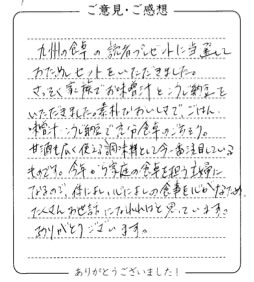 ご意見・ご感想
九州の食卓の読者プレゼントに当選して
おためしセットをいただきました。
さっそく家族でお味噌汁とこうじ納豆を
いただきました。素朴なおいしさで、ごはん、
味噌汁、こうじ納豆で充分食卓のごちそう。
甘酒も広く使える調味料として今一番注目している
ものです。今年から家庭の食卓を担う主婦に
なるので、体によい、心によしの食事を心がけるため、
たくさんお世話になれればと思っています。
ありがとうございます。
ありがとうございました！